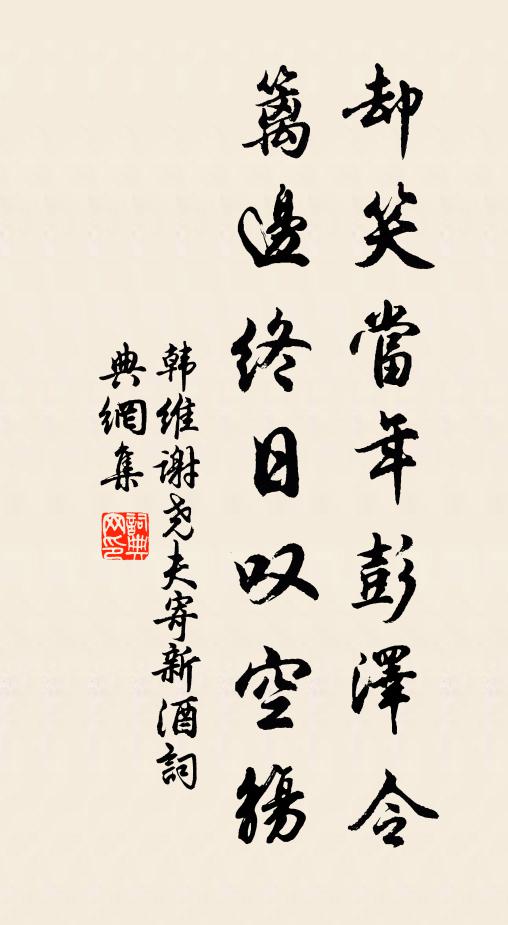 却笑當年彭澤令
籬邊終日叹空觴
韩維谢尧夫寄新酒詞
典網集
詞典網印